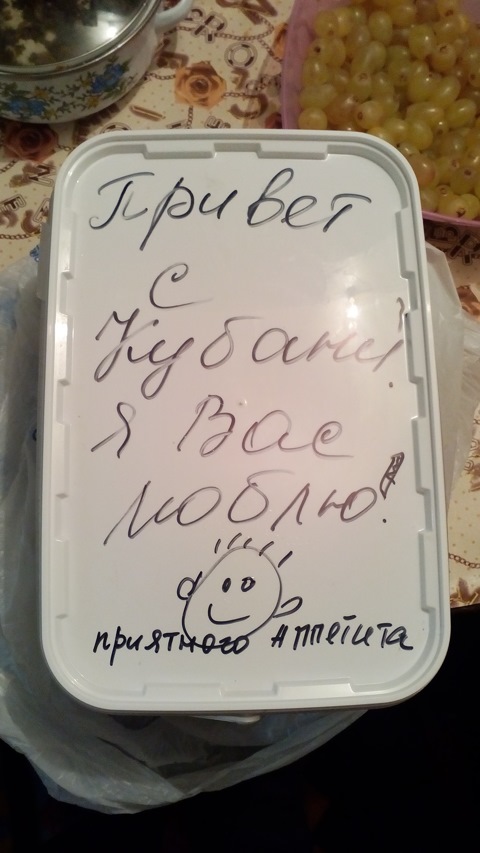 Привет
с
Кубани!
я Вас
люблю!
приятного аппетита